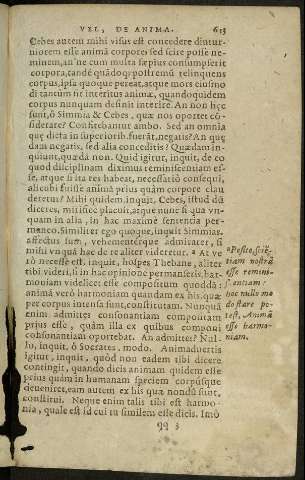 VEL, DE ANIMA. 635
Cebes autem mihi visus est concedere diutur-
niorem esse animã corpore: sed scire posse ne-
minem, an ne cum multa sæpius consumpserit
corpora, tandé quãdoq; postremũ relinquens
corpus, ipsa quoque pereat, atque mors eiusmo
di tantùm sit interitus animæ, quandoquidem
corpus nunquam desinit interire. An non hęc
sunt, ô Simmia & Cebes, quæ nos oportet cõ-
siderare? Consitebantur ambo. Sed an omnia
quę dicta in superiorib. fuerãt, negatis? An quę
dam negatis, sed alia conceditis? Quædam in-
quiunt, quædã non. Quid igitur, inquit, de eo
quod disciplinam diximus reminiscentiam es-
se, atque si ita res habeat, necessariò consequi,
alicubi fuisse animã prius quàm corpore clau
deretur? Mihi quidem, inquit, Cebes, istud dũ
diceres, mirifice placuit, atque nunc si qua vn-
quam in alia, in hac maximè sententia per-
maneo. Similiter ego quoque, inquit Simmias.
affectus sum, vehementérque admirarer, si
mihi vnquã hac de re aliter videretur. * At ve
rò necesse est, inquit, hospes Thebane, aliter
tibi videri, si in hac opinione permanseris, har-
moniam videlicet esse compositum quoddã:
animã verò harmoniam quandam ex his, quæ
per corpus intensa sunt, constitutam. Nunquã
enim admittes consonantiam compositam
prius esse, quàm illa ex quibus componi
consonantiam oportebat. An admittes? Nul-
lo, inquit, ô Socrates, modo. Animaduertis
igitur, inquit, quòd non eadem tibi dicere
contingit, quando dicis animam quidem esse
prius quàm in humanam speciem corpúsque
deueniret, eam autem ex his quæ nondũ sunt,
constitui. Neque enim talis tibi est harmo-
nia, quale est id cui tu similem esse dicis. Imò
qq 3
* Posito, sciẽ-
tiam nostrã
esse remini-
scentiam:
hoc nullo mo
do stare po-
test, Animã
esse harmo-
niam.